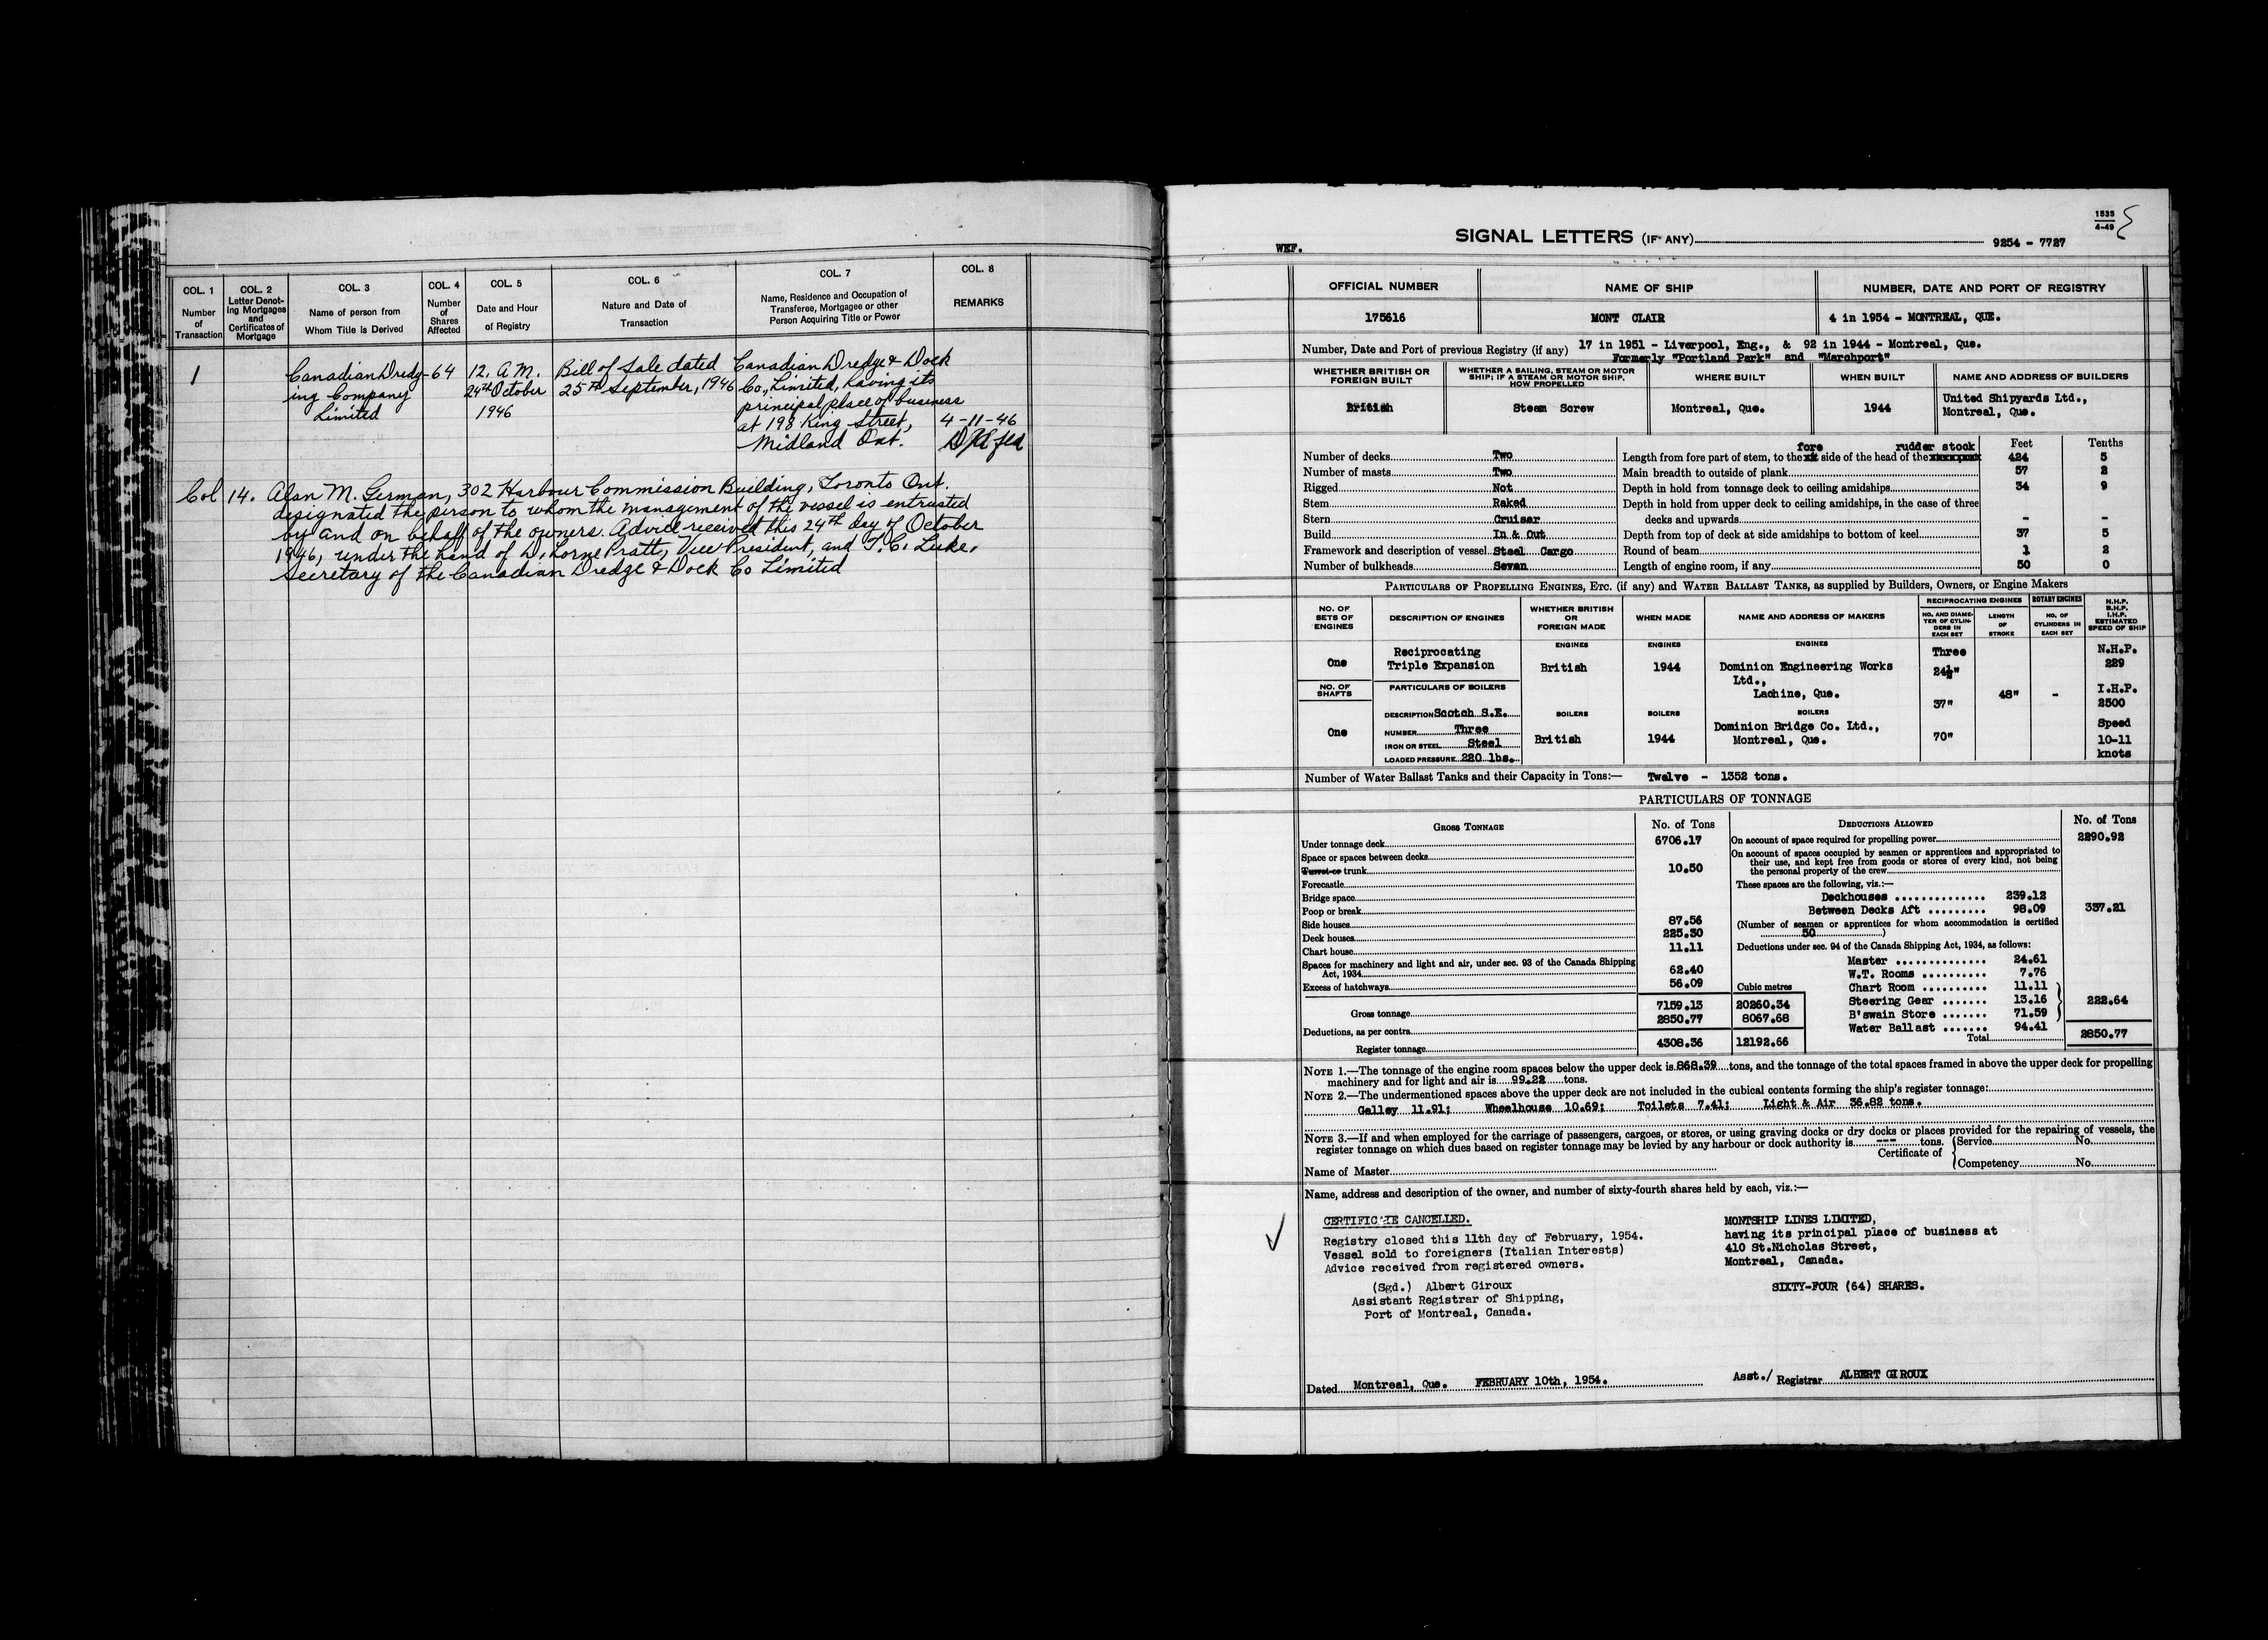 COL. 1
Number
of
Transaction
COL. 2
Letter Denot-
ing Mortgages
and
Certificates of
Mortgage
COL. 3
Name of person from
Whom Title is Derived
COL. 4
Number
of
Shares
Affected
COL. 5
Date and Hour
of Registry
COL. 6
Nature and Date of
Transaction
COL. 7
Name, Residence and Occupation of
Transferee, Mortgagee or other
Person Acquiring Title or Power
COL. 8
REMARKS
1
Canadian Dredg-
ing Company
Limited
64
12. A.M.
24th October
1946
Bill of Sale dated
25TH September, 1946
Canadian Dredge & Dock
Co., Limited, having its
principal place of business
at 198 King Street,
Midland Ont.
4-11-46
Col 14. Alan M. German, 302 Harbour Commission Building, Toronto Ont.
designated the person to whom the management of the vessel is entrusted
by and on behalf of the owners. Advice received this 24th day of October
1946, under the hand of D. Lorne Pratt, Vice President, and T. C. Luke,
Secretary of the Canadian Dredge & Dock Co Limited
1535
4-49
WEF.
SIGNAL LETTERS (IF ANY) 9254 - 7727
OFFICIAL NUMBER
NAME OF SHIP
NUMBER, DATE AND PORT OF REGISTRY
175616
MONT CLAIR
4 in 1954 - MONTREAL, QUE.
Number, Date and Port of previous Registry (if any) 17 in 1951 - Liverpool, Eng., & 92 in 1944 - Montreal, Que.
Formerly "Portland Park" and "Marchport"
WHETHER BRITISH OR
FOREIGN BUILT
WHETHER A SAILING, STEAM OR MOTOR
SHIP; IF A STEAM OR MOTOR SHIP,
HOW PROPELLED
WHERE BUILT
WHEN BUILT
NAME AND ADDRESS OF BUILDERS
British
Steam Screw
Montreal, Que.
1944
United Shipyards Ltd.,
Montreal, Que.
Number of decks Two
Number of masts Two
Rigged Not
Stem Raked
Stern Cruiser
Build In & Out
Framework and description of vessel Steel Cargo
Number of bulkheads Seven
Feet Tenths
fore rudder stock
Length from fore part of stem, to the xx side of the head of the xxxxxxxxx 424 5
Main breadth to outside of plank 57 2
Depth in hold from tonnage deck to ceiling amidships 34 9
Depth in hold from upper deck to ceiling amidships, in the case of three
decks and upwards - -
Depth from top of deck at side amidships to bottom of keel 37 5
Round of beam 1 2
Length of engine room, if any 50 0
PARTICULARS OF PROPELLING ENGINES, ETC. (if any) and WATER BALLAST TANKS, as supplied by Builders, Owners, or Engine Makers
NO. OF
SETS OF
ENGINES
DESCRIPTION OF ENGINES
WHETHER BRITISH
OR
FOREIGN MADE
WHEN MADE
NAME AND ADDRESS OF MAKERS
RECIPROCATING ENGINES
NO. AND DIAME-
TER OF CYLIN-
DERS IN
EACH SET
LENGTH
OF
STROKE
ROTARY ENGINES
NO. OF
CYLINDERS IN
EACH SET
N.H.P.
B.H.P.
I.H.P.
ESTIMATED
SPEED OF SHIP
One
Reciprocating
Triple Expansion
ENGINES
British
ENGINES
1944
ENGINES
Dominion Engineering Works
Ltd.,
Lachine, Que.
Three
24½"
37"
70"
48"
-
N.H.P.
229
I.H.P.
2500
Speed
10-11
knots
NO. OF
SHAFTS
One
PARTICULARS OF BOILERS
DESCRIPTION Scotch S.E.
NUMBER Three
IRON OR STEEL Steel
LOADED PRESSURE 220 lbs.
BOILERS
British
BOILERS
1944
BOILERS
Dominion Bridge Co. Ltd.,
Montreal, Que.
Number of Water Ballast Tanks and their Capacity in Tons:— Twelve - 1352 tons.
PARTICULARS OF TONNAGE
GROSS TONNAGE
No. of Tons
Under tonnage deck 6706.17
Space or spaces between decks
Turret or trunk 10.50
Forecastle
Bridge space
Poop or break
Side houses 87.56
Deck houses 225.30
Chart house 11.11
Spaces for machinery and light and air, under sec. 93 of the Canada Shipping
Act, 1934 62.40
Excess of hatchways 56.09
Cubic metres
Gross tonnage 7159.13 20260.34
Deductions, as per contra 2850.77 8067.68
Register tonnage 4308.36 12192.66
DEDUCTIONS ALLOWED
No. of Tons
On account of space required for propelling power 2290.92
On account of spaces occupied by seamen or apprentices and appropriated to
their use, and kept free from goods or stores of every kind, not being
the personal property of the crew
These spaces are the following, viz.:—
Deckhouses 239.12
Between Decks Aft 98.09 337.21
(Number of seamen or apprentices for whom accommodation is certified
50 )
Deductions under sec. 94 of the Canada Shipping Act, 1934, as follows:
Master 24.61
W.T. Rooms 7.76
Chart Room 11.11
Steering Gear 13.16 222.64
B'swain Store 71.59
Water Ballast 94.41
Total 2850.77
NOTE 1.—The tonnage of the engine room spaces below the upper deck is 868.39 tons, and the tonnage of the total spaces framed in above the upper deck for propelling
machinery and for light and air is 99.22 tons.
NOTE 2.—The undermentioned spaces above the upper deck are not included in the cubical contents forming the ship's register tonnage:
Galley 11.91; Wheelhouse 10.69; Toilets 7.41; Light & Air 36.82 tons.
NOTE 3.—If and when employed for the carriage of passengers, cargoes, or stores, or using graving docks or dry docks or places provided for the repairing of vessels, the
register tonnage on which dues based on register tonnage may be levied by any harbour or dock authority is --- tons.
Certificate of
Service No.
Competency No.
Name of Master
Name, address and description of the owner, and number of sixty-fourth shares held by each, viz.:—
CERTIFICATE CANCELLED.
Registry closed this 11th day of February, 1954.
Vessel sold to foreigners (Italian Interests)
Advice received from registered owners.
(Sgd.) Albert Giroux
Assistant Registrar of Shipping,
Port of Montreal, Canada.
MONTSHIP LINES LIMITED,
having its principal place of business at
410 St.Nicholas Street,
Montreal, Canada.
SIXTY-FOUR (64) SHARES.
Dated Montreal, Que. FEBRUARY 10th, 1954.
Asst./ Registrar ALBERT GIROUX